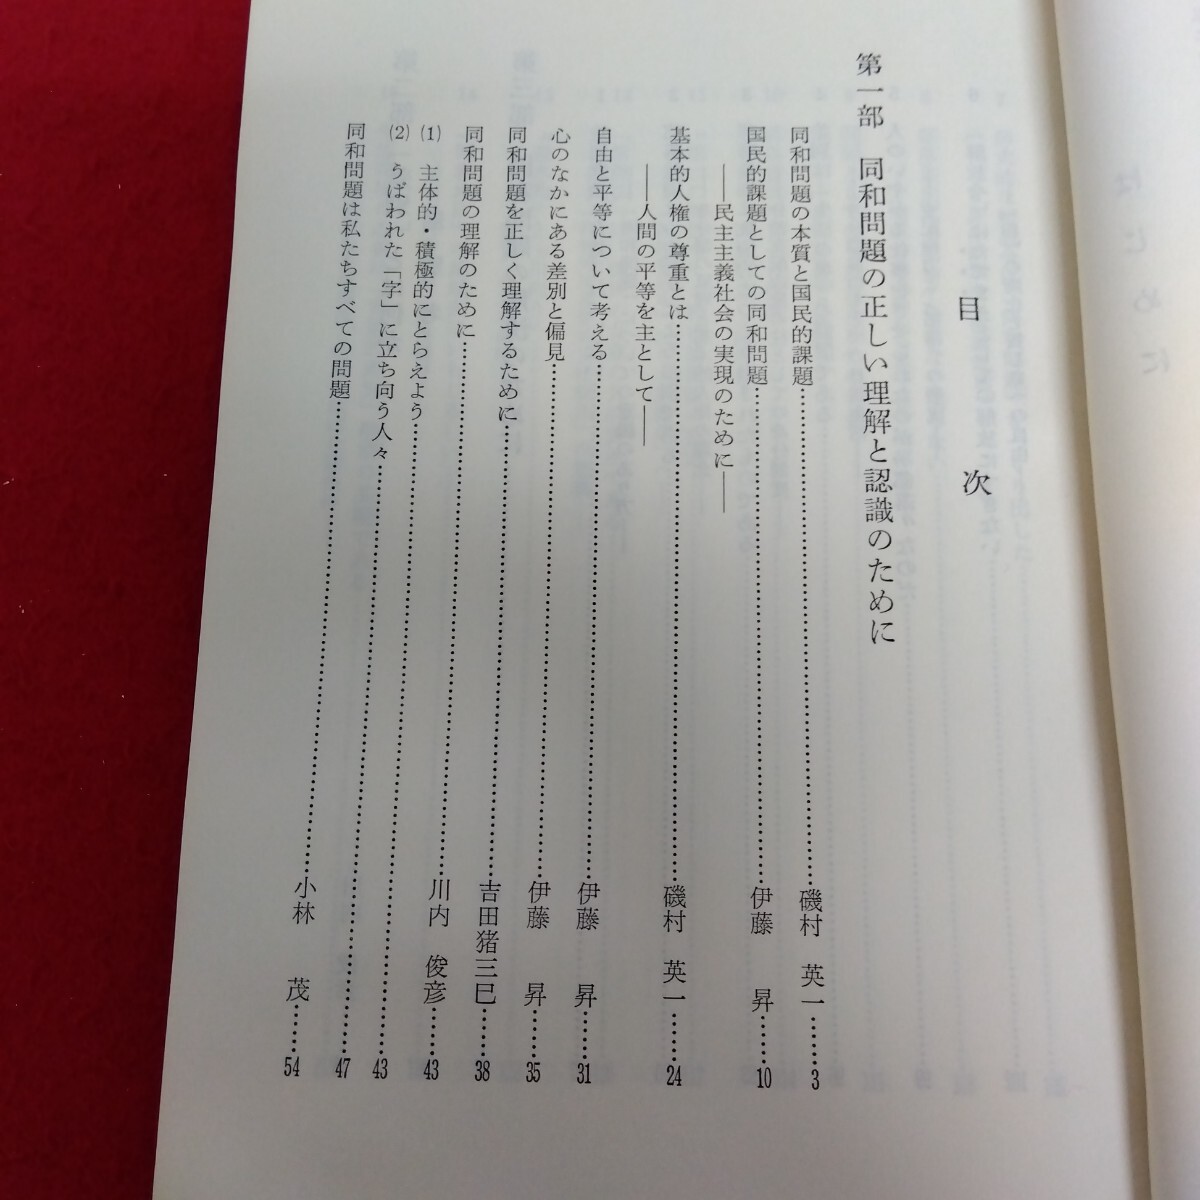 目次
第一部 同和問題の正しい理解と認識のために
同和問題の本質と国民的課題…………磯村 英一……3
国民的課題としての同和問題…………伊藤 昇……10
――民主主義社会の実現のために――
基本的人権の尊重とは…………磯村 英一……24
――人間の平等を主として――
自由と平等について考える…………伊藤 昇……31
心のなかにある差別と偏見…………伊藤 昇……35
同和問題を正しく理解するために…………吉田猪三巳……38
同和問題の理解のために…………川内 俊彦……43
(1) 主体的・積極的にとらえよう…………43
(2) うばわれた「字」に立ち向う人々…………47
同和問題は私たちすべての問題…………小林 茂……54
はじめに